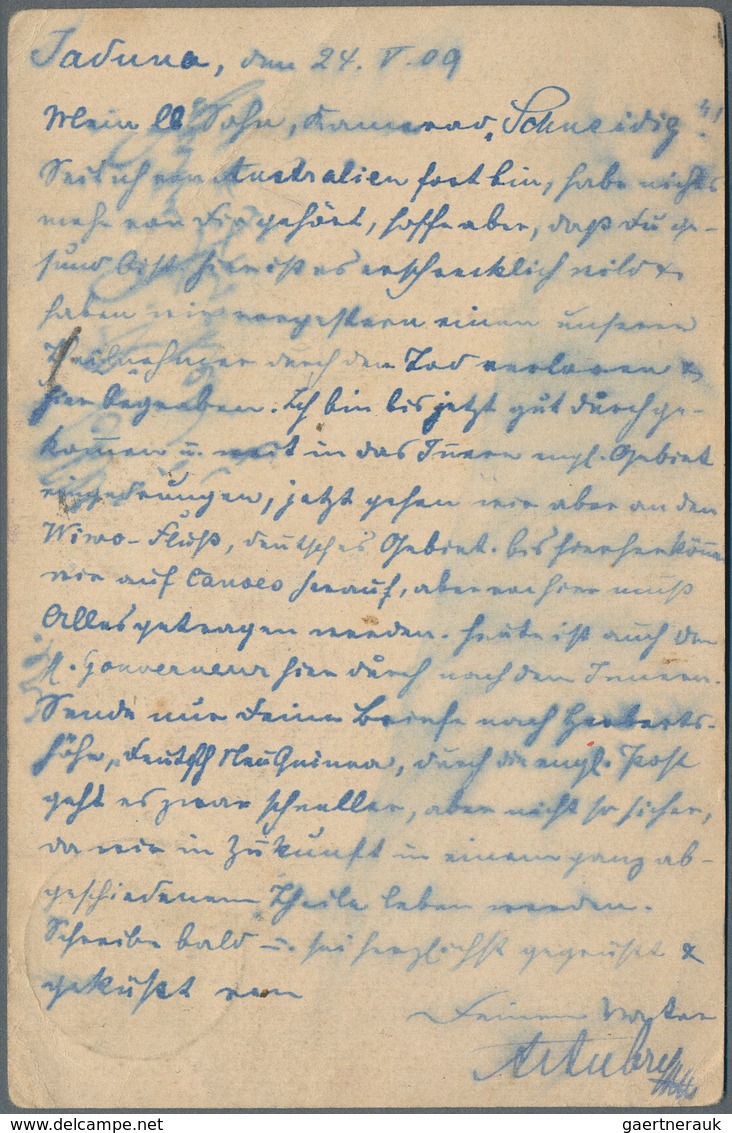 Taduna, den 24. V. 09
Mein ll Sohn, Kamerad „Schneidig"!
Seit ich von Australien fort bin, habe nichts
mehr von Dir gehört, hoffe aber, daß Du ge-
sund bist. Hier ist es erschrecklich wild &
haben wir vorgestern einen unserer
Theilnehmer durch den Tod verloren &
hier begraben. Ich bin bis jetzt gut durchge-
kommen u. weit in das Innere engl. Gebiet
eingedrungen, jetzt gehen wir aber an den
Wiwo-Fluß, deutsches Gebiet. bis hierher können
wir auf Canoes herauf, aber von hier muß
Alles getragen werden. Heute ist auch der
Gouverneur hier durch nach dem Innern.
Sende nur Deine Briefe nach Herberts-
höhe, Deutsch Neu Guinea, durch die engl. Post
geht es zwar schneller, aber nicht so sicher,
da wir in Zukunft in einem ganz ab-
geschiedenem Theile leben werden.
Schreibe bald u. sei herzlichst gegrüßt &
geküßt von
Deinem Vater
gaertnerauk